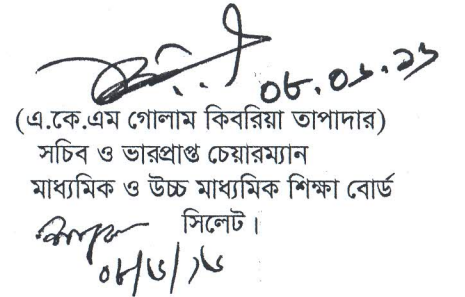 ০৮.০১.১৬
(এ.কে.এম গোলাম কিবরিয়া তাপাদার)
সচিব ও ভারপ্রাপ্ত চেয়ারম্যান
মাধ্যমিক ও উচ্চ মাধ্যমিক শিক্ষা বোর্ড
সিলেট।